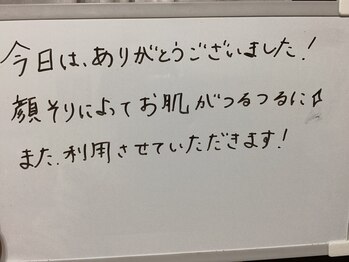 今日は、ありがとうございました!
顔そりによってお肌がつるつるに♪
また、利用させていただきます!